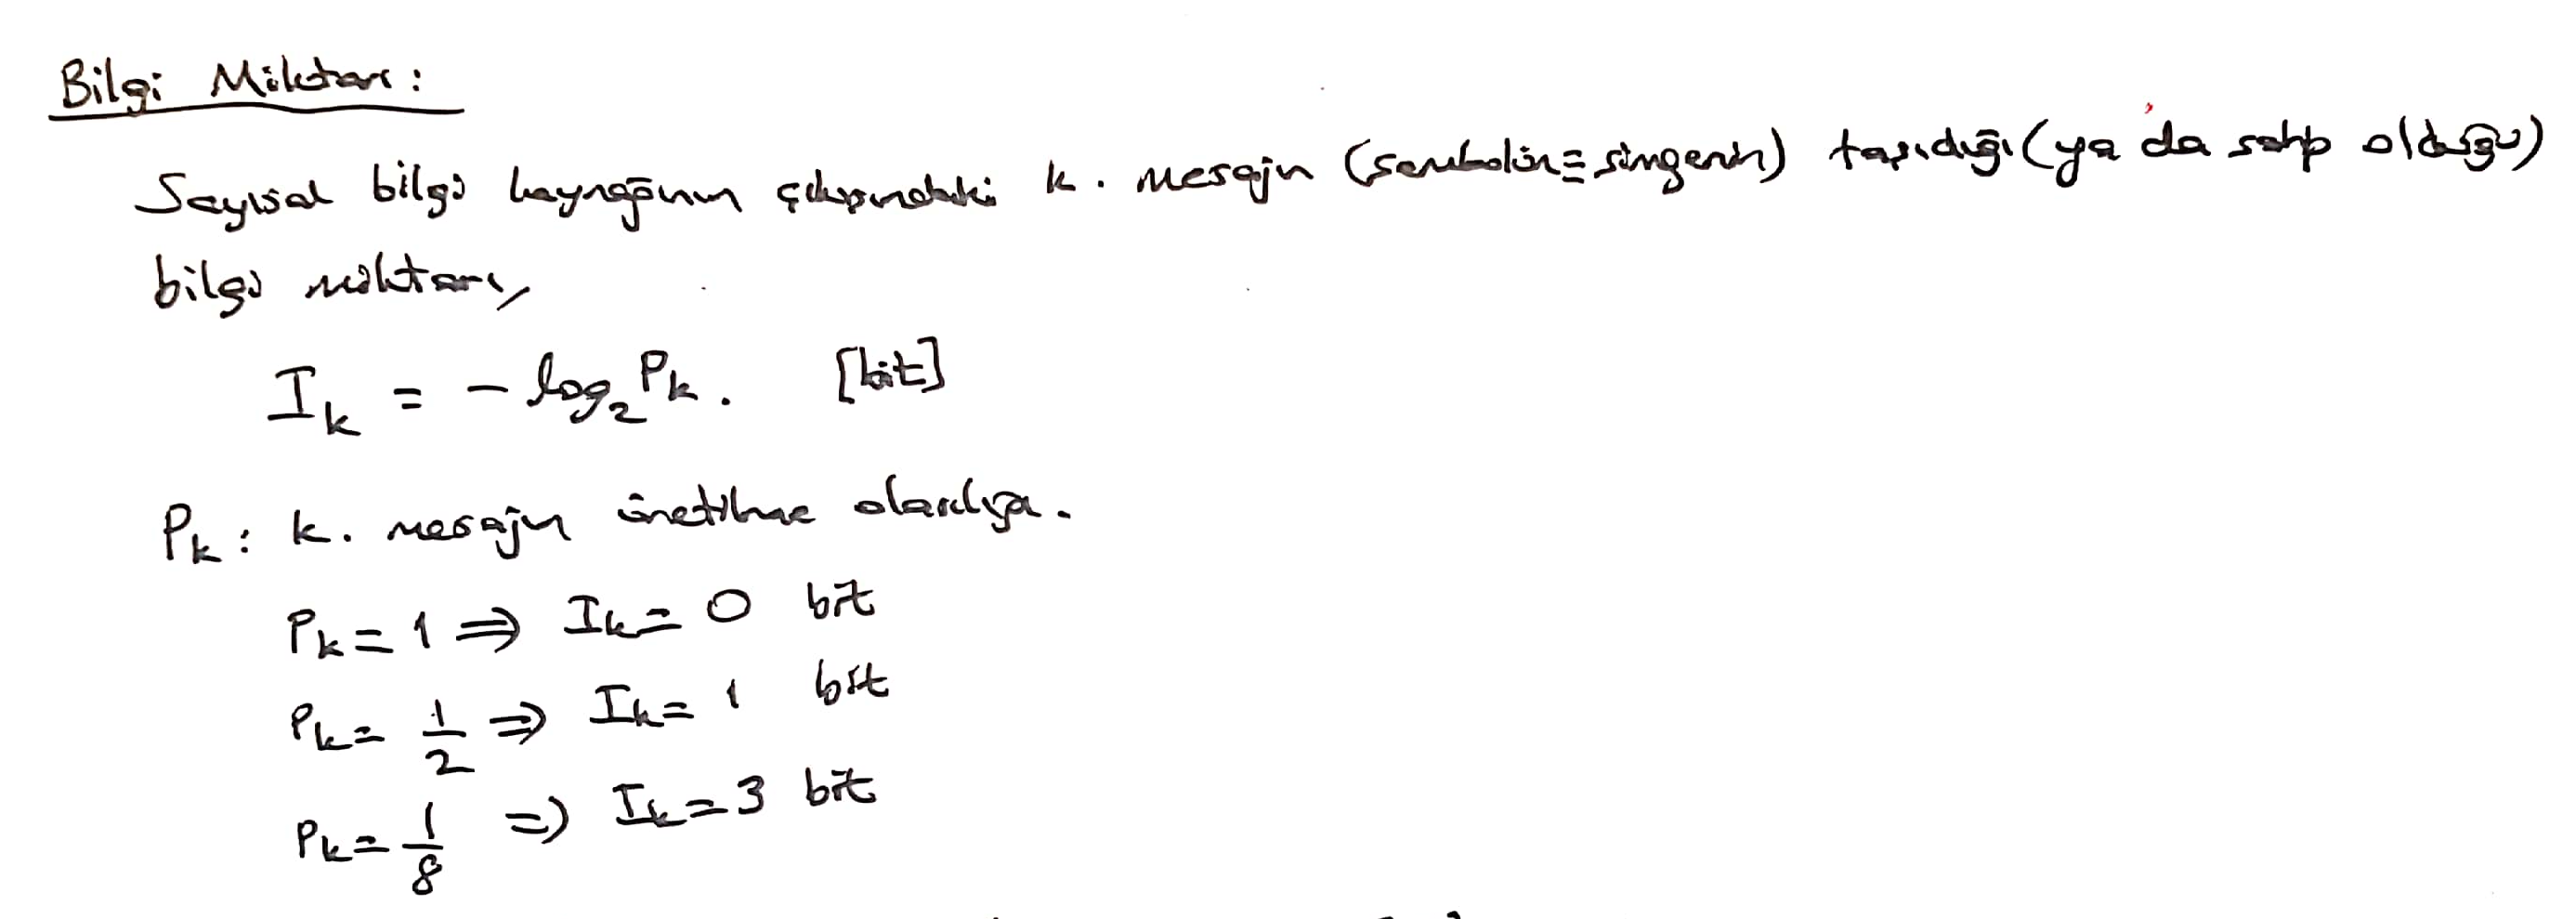 Bilgi Miktarı:
Sayısal bilgi kaynağının çıkışındaki k. mesajın (sembolün≡simgenin) taşıdığı (ya da sahip olduğu)
bilgi miktarı,
I_k = - log_2 P_k . [bit]
P_k : k. mesajın üretilme olasılığı.
P_k = 1 ⇒ I_k = 0 bit
P_k = 1/2 ⇒ I_k = 1 bit
P_k = 1/8 ⇒ I_k = 3 bit